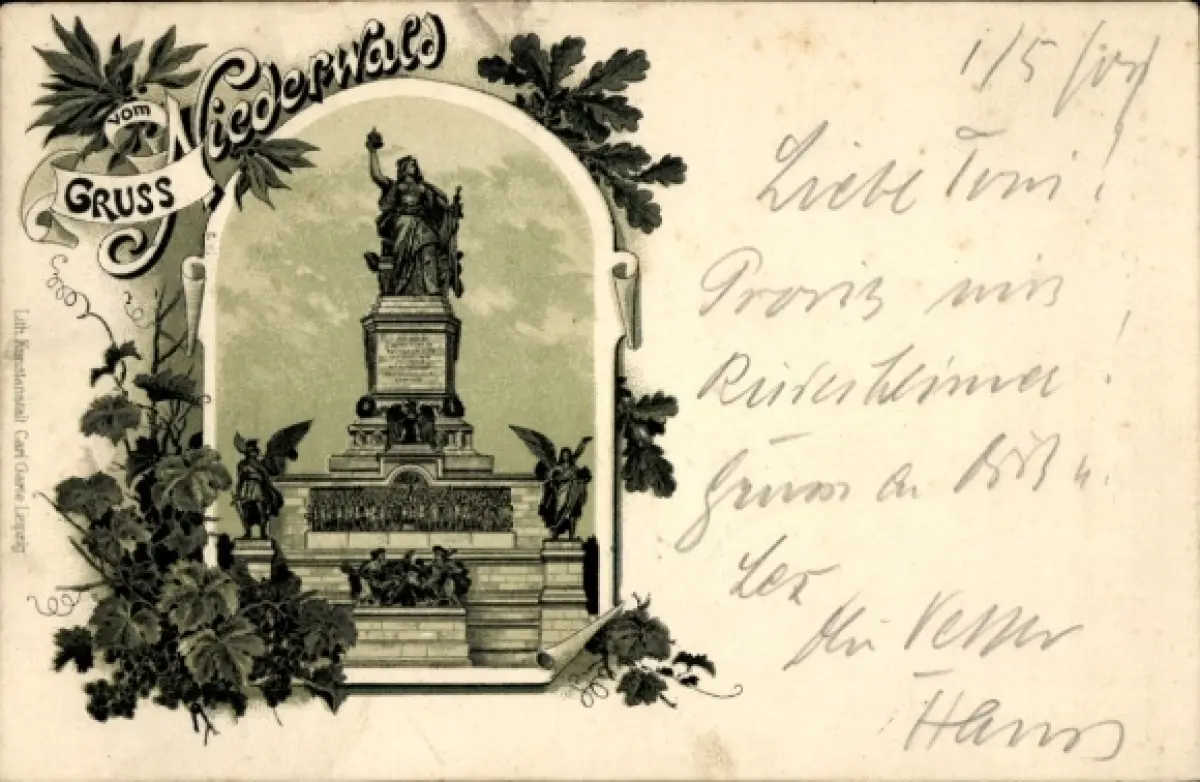 GRUSS
vom
Niederwald
Lith. Kunstanstalt Carl Garte Leipzig
1/5
Liebe Toni!
Prosit mit
Rüdesheimer!
dich u.
Dein Vetter
Hans